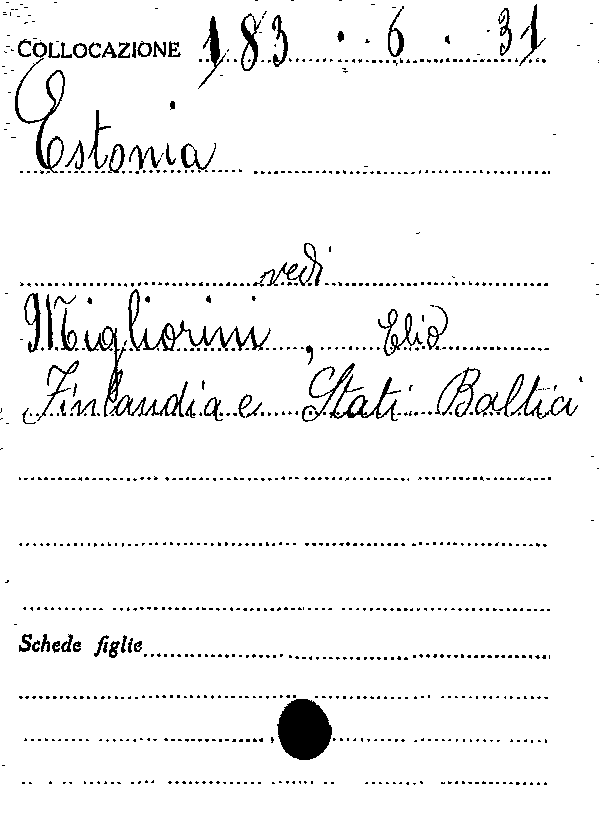 COLLOCAZIONE 183 . 6 . 31
Estonia
vedi
Migliorini, Elio
Finlandia e Stati Baltici
Schede figlie